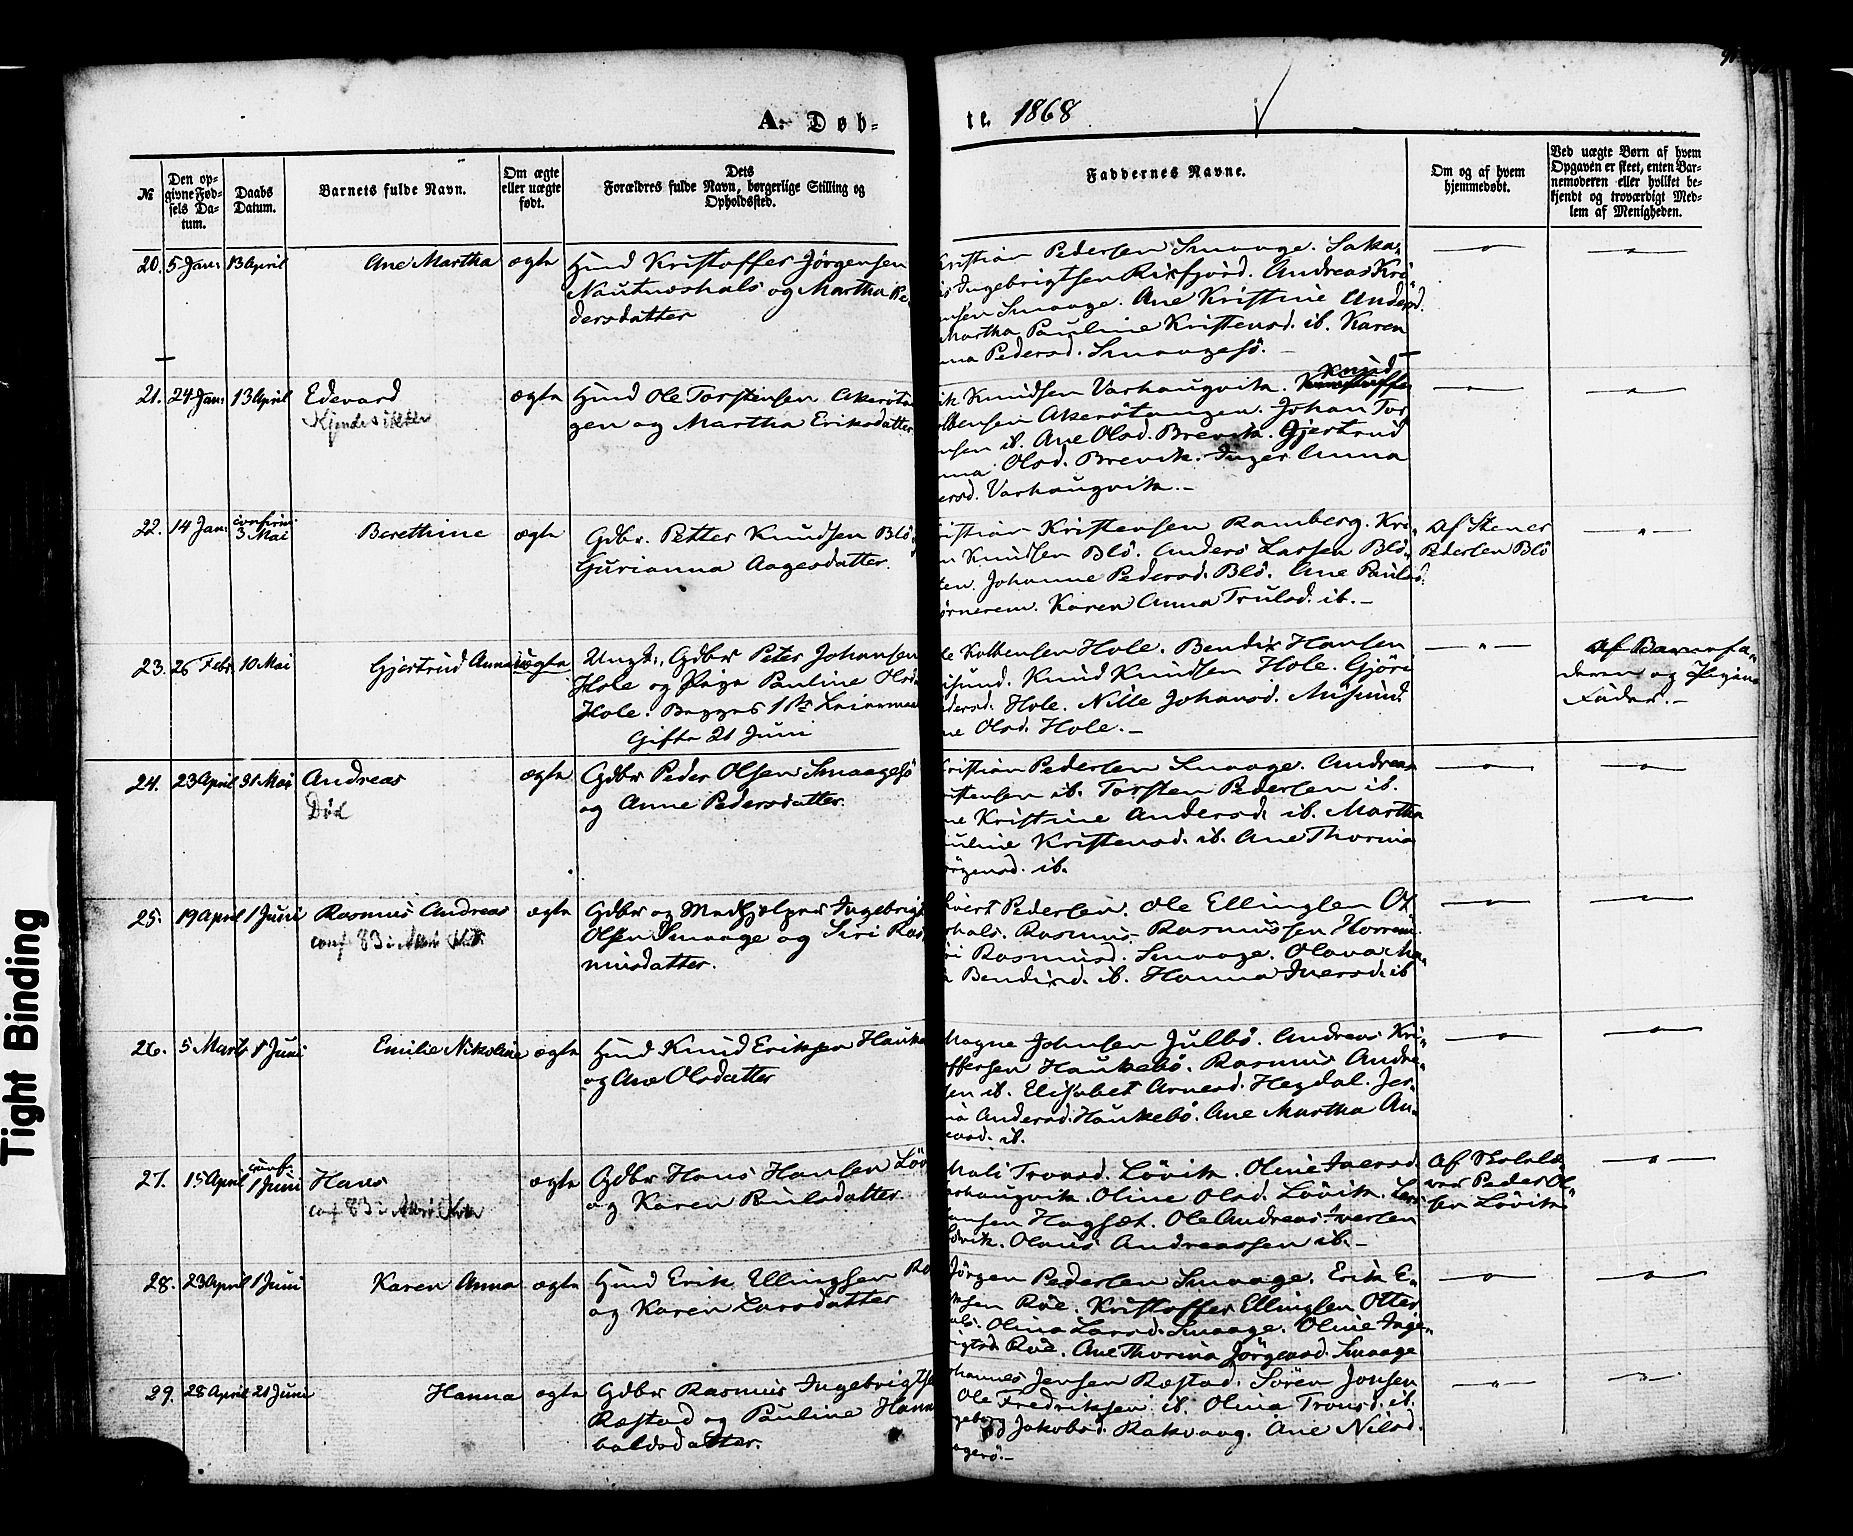 A. Døb-
te. 1868
№
Den opgivne Fødsels Datum.
Daabs Datum.
Barnets fulde Navn.
Om ægte eller uægte født.
Dets
Forældres fulde Navn, borgerlige Stilling og Opholdssted.
Faddernes Navne.
Om og af hvem hjemmedøbt.
Ved uægte Børn af hvem Opgaven er skeet, enten Barnemoderen eller hvilket bekjendt og troværdigt Medlem af Menigheden.
20. 5 Jan: 13 April Ane Martha ægte
Hmd Kristoffer Jörgensen
Nautneshals og Martha Pe-
dersdatter
Kristian Pedersen Smaage. Saka-
Ingebrigtsen Rixfjord. Andreas Kri-
ensen Smaage. Ane Kristine Andersd.
Martha Pauline Kristensd. ib. Karen
Pedersd. Smaagesö.
21. 24 Jan: 13 April Edevard ægte
Kjendes ikke
Hmd Ole Torstensen Akerötan
gen og Martha Eriksdatter
Knud
Knudsen Varhaugvik.
Akerötangen. Johan Tor
ib. Ane Olsd. Brevik. Gjertrud
Olsd. Brevik. Inger Anna
Varhaugvik.
22. 14 Jan: confirm. 3 Mai Berethine ægte
Gdbr. Petter Knudsen Blö
Gurianna Aagesdatter.
Kristensen Ramberg. Kri-
Knudsen Blö. Anders Larsen Blö-
ten. Johanne Pedersd. Blö. Ane Paulsd.
Karen Anna Trulsd. ib.
Af Stener
Pedersen Blö
23. 26 Febr 10 Mai Gjertrud Anna uægte
Ungk., Gdbr Peter Johansen
Hole og Pige Pauline Olsd
Hole. Begges 1ste Leiermaal
Gifte 21 Juni
Kolbensen Hole. Bendix Hansen
Knud Knudsen Hole. Gjöri
Hole. Nille Johansd. Misund.
Olsd. Hole.
Af Barnefa-
deren og Pigens
Fader.
24. 23 April 31 Mai Andreas ægte
Död
Gdbr Peder Olsen Smaagesö
og Anne Pedersdatter.
Kristian Pedersen Smaage. Andreas
ib. Torsten Pedersen ib.
Kristine Andersd. ib. Martha
Kristensd. ib. Ane Thorina
ib.
25. 19 April 1 Juni Rasmus Andreas ægte
conf. 83 i
Gdbr og Medhjelper Ingebrigt
Olsen Smaage og Siri Ras
musdatter.
Pedersen. Ole Ellingsen Ot-
Rasmus Rasmussen Horrem.
Rasmusd. Smaage. Olava
Bendixd. ib. Hanna Iversd. ib
26. 5 Marts 1 Juni Emilie Nikoline ægte
Hmd Knud Eriksen Hauke
og Ane Olsdatter
Magne Johnsen Julbö. Andreas Kri-
Haukebö. Rasmus Andre-
ib. Elisabet Arnesd. Hegdal. Jer-
Andersd. Haukebö. Ane Martha An-
ib.
27. 15 April conf. 1 Juni Hans ægte
conf 83 i
Gdbr Hans Hansen Löv
og Karen Paulsdatter
Mali Tronsd. Lövik. Oline Iversd.
Oline Olsd. Lövik.
Hagset. Ole Andreas Iversen
Olaus Andreassen ib.
Af Skolelæ-
rer Peder Ol-
sen Lövik
28. 23 April 1 Juni Karen Anna ægte
Hmd Erik Ellingsen Ro
og Karen Larsdatter
Jörgen Pedersen Smaage. Erik E-
Röe. Kristoffer Ellingsen Otter
Olina Larsd. Smaage. Oline Inge-
Röe. Ane Thorina Jörgensd. Smaage
29. 28 April 21 Juni Hanna ægte
Gdbr Rasmus Ingebrigtse
Ræstad og Pauline Hanni
baldsdatter.
Johannes Jensen Ræstad. Sören Jonsen
Ole Fredriksen ib. Olina Tronsd. ib.
Jakobsd. Rakvaag. Ane Nilsd.
Tight Binding